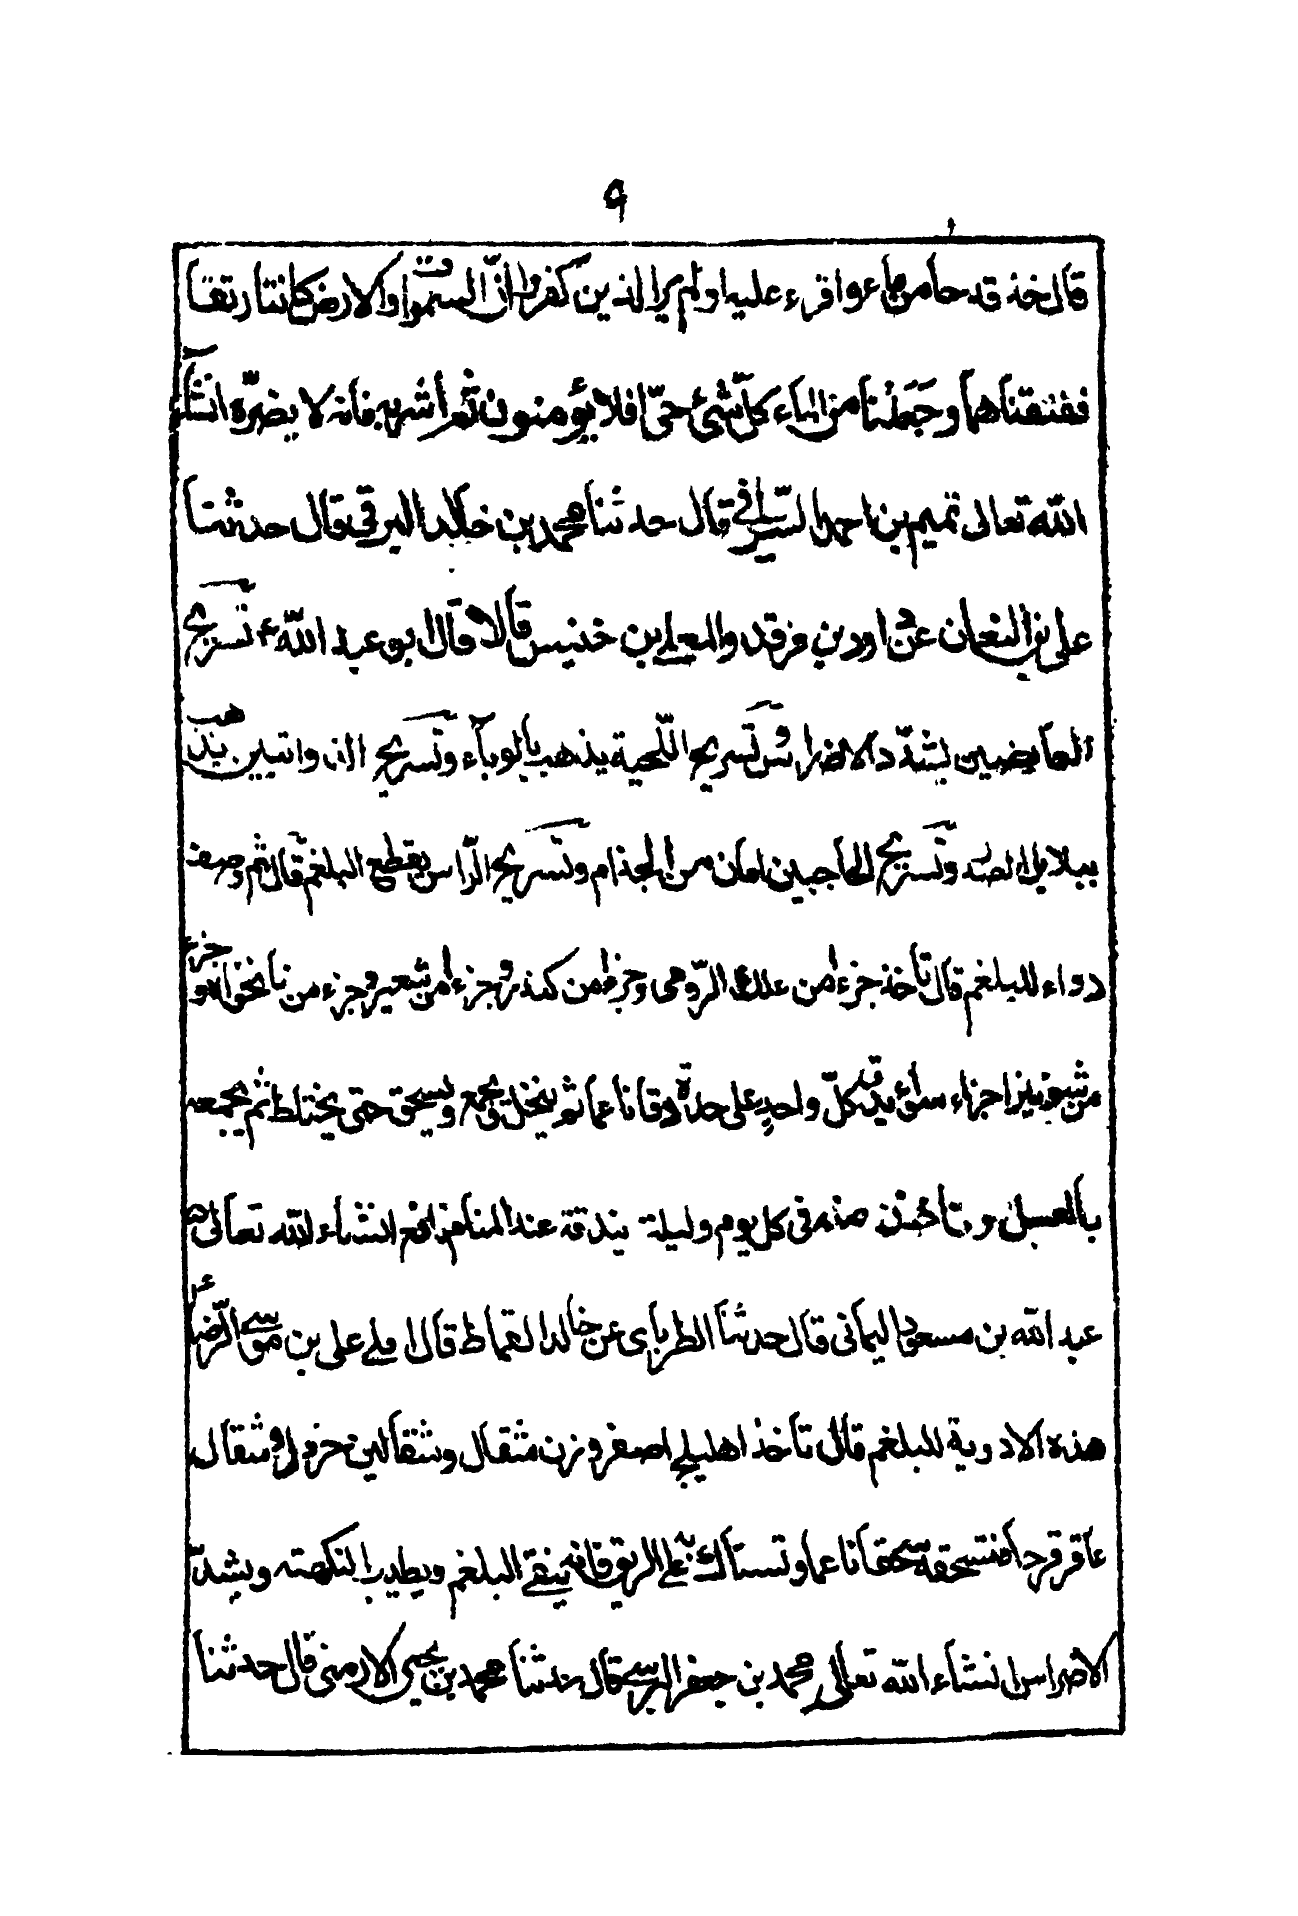 ٩
قال خذ قدحا من ماء واقرء عليه اولم ير الذين كفروا انّ السمٰوات والارض كانتا رتقا
ففتقناهما وجَعَلْنا من الماء كلّ شئ حيّ افلا يؤمنون ثم اشربه فانه لا يضرّه انشآء
الله تعالى تميم بن احمد السيرافي قال حدثنا محمد بن خالد البرقي قال حدثنا
على بن النعمان عن داود بن فرقد والمعلى بن خنيس قالا قال ابو عبد الله ع تسريح
العارضين يشدّد الاضراس وتسريح اللحية يذهب بالوباء وتسريح الذوابتين يذهب
ببلابل الصدر وتسريح الحاجبين امان من الجذام وتسريح الرّاس يقطع البلغم قال ثم وصف
دواء للبلغم قال تاخذ جزءا من علك الرّومى وجزءا من كندر وجزءا من شعير وجزء من نانخواه وجزء
من شونيز اجزاء سواء يدق كلّ واحد على حدة دقا ناعما ثم ينخل ويجمع ويسحق حتى يختلط ثم يجمعه
بالعسل وتاخذ منه في كل يوم وليلة بندقة عند المنام نافع انشاء الله تعالى
عبد الله بن مسعود اليمانى قال حدثنا الطربانى عن خالد القماط قال املى على بن موسى الرّضا ع
هذه الادوية للبلغم قال تاخذ اهليلج اصفر وزن مثقال ومثقالين خردل ومثقال
عاقر قرحا فتسحقه سحقا ناعما وتستاك به على الريق فانه ينقى البلغم ويطيب النكهة ويشدّ
الاضراس انشاء الله تعالى محمد بن جعفر البرسي قال حدثنا محمد بن يحيى الارمنى قال حدثنا